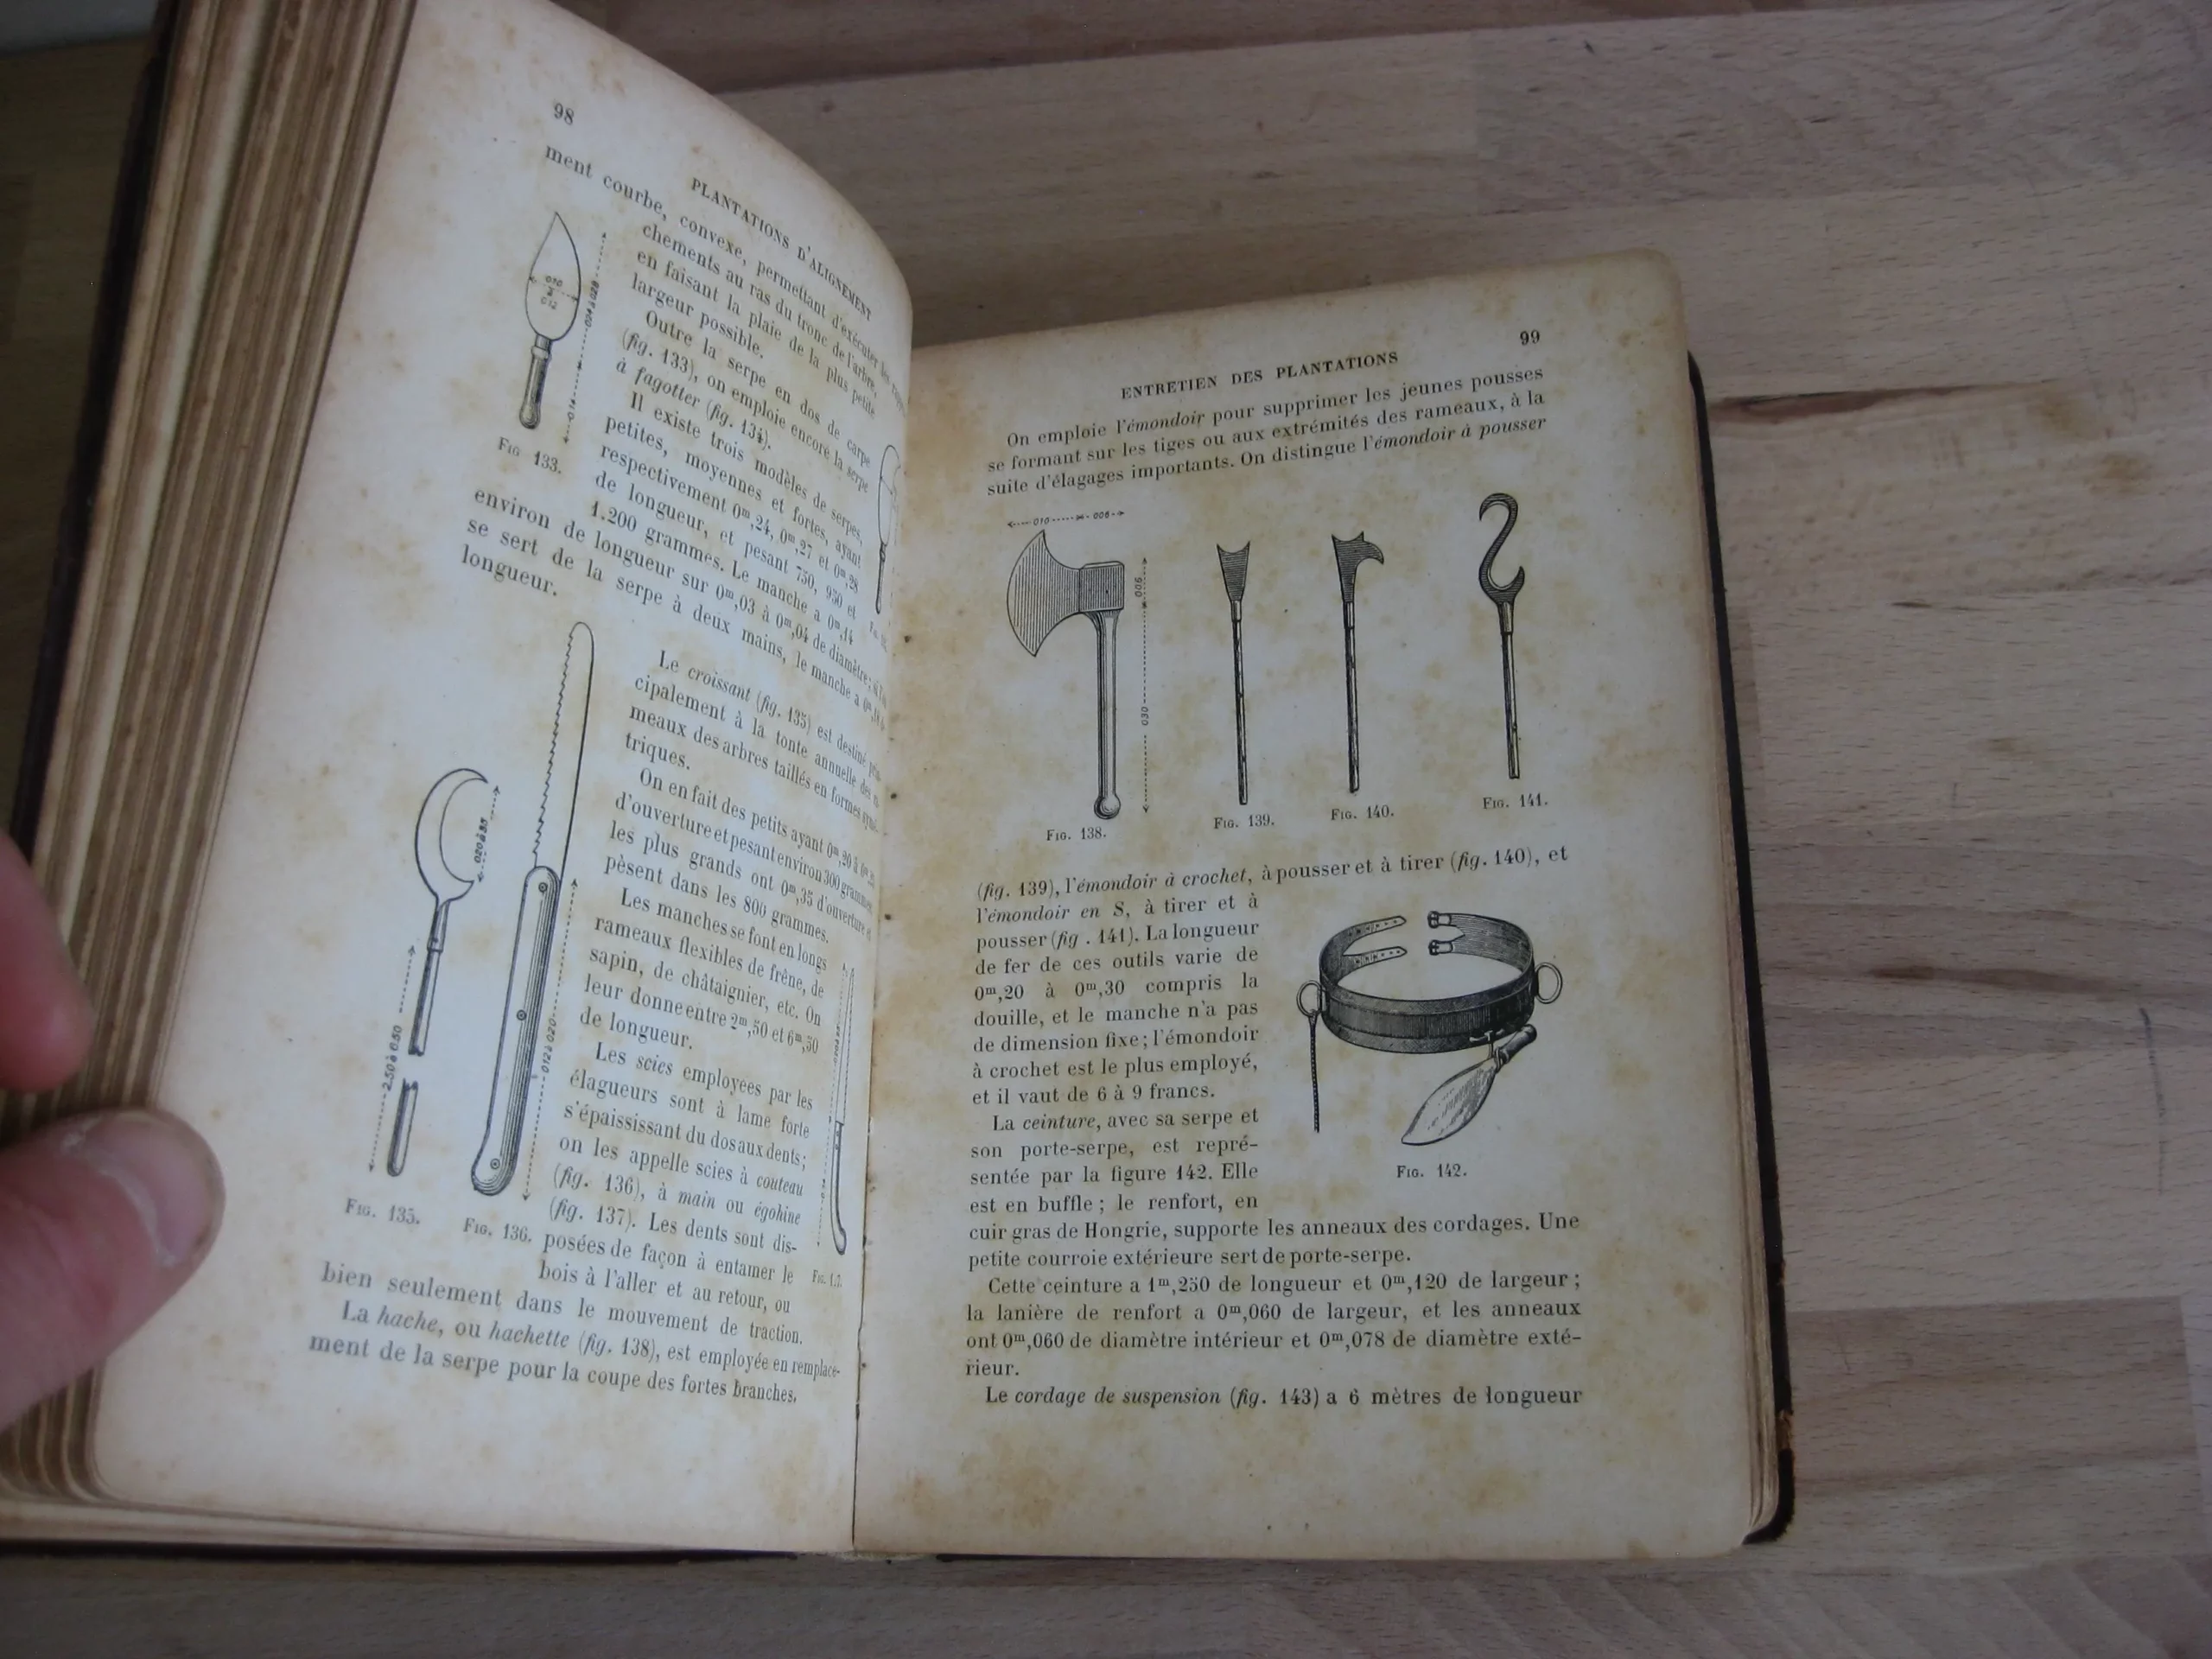 98
PLANTATIONS D'ALIGNEMENT
ment courbe, convexe, permettant d'exécuter les
chements au ras du tronc de l'arbre,
en faisant la plaie de la plus petite
largeur possible.
Outre la serpe en dos de carpe
(fig. 133), on emploie encore la serpe
à fagotter (fig. 134).
Il existe trois modèles de serpes,
petites, moyennes et fortes, ayant
respectivement 0m,24, 0m,27 et 0m,28
de longueur, et pesant 750, 950 et
1.200 grammes. Le manche a 0m,14
environ de longueur sur 0m,03 à 0m,04 de diamètre;
se sert de la serpe à deux mains, le manche a
longueur.
024 à 028
014
FIG 133.
Le croissant (fig. 135) est destiné prin-
cipalement à la tonte annuelle des
meaux des arbres taillés en formes
triques.
On en fait des petits ayant 0m,20 à
d'ouverture et pesant environ 300 grammes
les plus grands ont 0m,35 d'ouverture
pèsent dans les 800 grammes.
Les manches se font en longs
rameaux flexibles de frêne, de
sapin, de châtaignier, etc. On
leur donne entre 2m,50 et 6m,50
de longueur.
Les scies employées par les
élagueurs sont à lame forte
s'épaississant du dos aux dents;
on les appelle scies à couteau
(fig. 136), à main ou égohine
(fig. 137). Les dents sont dis-
posées de façon à entamer le
bois à l'aller et au retour, ou
bien seulement dans le mouvement de traction.
La hache, ou hachette (fig. 138), est employée en remplace-
ment de la serpe pour la coupe des fortes branches.
020 à 035
2.50 à 6.50
012 à 020
FIG. 135.
FIG. 136.
99
ENTRETIEN DES PLANTATIONS
On emploie l'émondoir pour supprimer les jeunes pousses
se formant sur les tiges ou aux extrémités des rameaux, à la
suite d'élagages importants. On distingue l'émondoir à pousser
010 006
006
030
FIG. 138.
FIG. 139.
FIG. 140.
FIG. 141.
(fig. 139), l'émondoir à crochet, à pousser et à tirer (fig. 140), et
l'émondoir en S, à tirer et à
pousser (fig . 141). La longueur
de fer de ces outils varie de
0m,20 à 0m,30 compris la
douille, et le manche n'a pas
de dimension fixe; l'émondoir
à crochet est le plus employé,
et il vaut de 6 à 9 francs.
La ceinture, avec sa serpe et
son porte-serpe, est repré-
sentée par la figure 142. Elle
est en buffle ; le renfort, en
cuir gras de Hongrie, supporte les anneaux des cordages. Une
petite courroie extérieure sert de porte-serpe.
FIG. 142.
Cette ceinture a 1m,250 de longueur et 0m,120 de largeur ;
la lanière de renfort a 0m,060 de largeur, et les anneaux
ont 0m,060 de diamètre intérieur et 0m,078 de diamètre exté-
rieur.
Le cordage de suspension (fig. 143) a 6 mètres de longueur